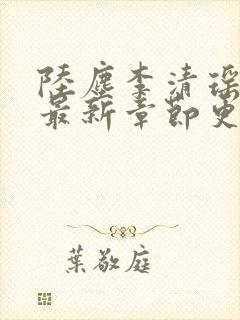 陸塵李清瑶
最新章節更
葉敬庭